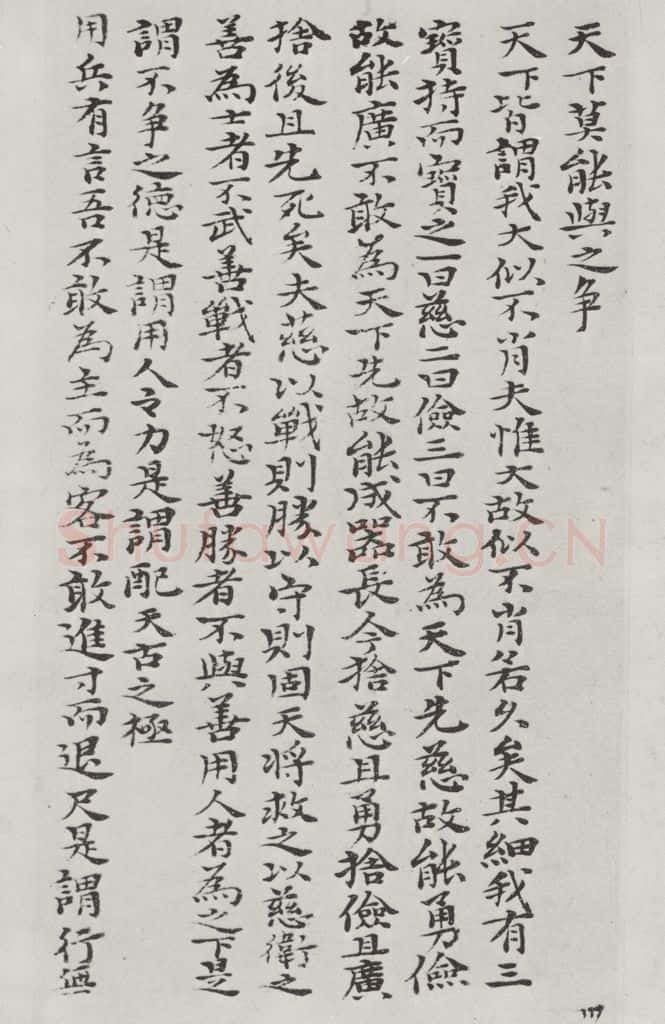 天下莫能與之争
天下皆謂我大似不肖夫惟大故似不肖若久矣其細我有三
寶持而寶之一曰慈二曰儉三曰不敢為天下先慈故能勇儉
故能廣不敢為天下先故能成器長今捨慈且勇捨儉且廣
捨後且先死矣夫慈以戰則勝以守則固天將救之以慈衛之
善為士者不武善戰者不怒善勝者不與善用人者為之下是
謂不争之德是謂用人之力是謂配天古之極
用兵有言吾不敢為主而為客不敢進寸而退尺是謂行無
Shufawang.CN